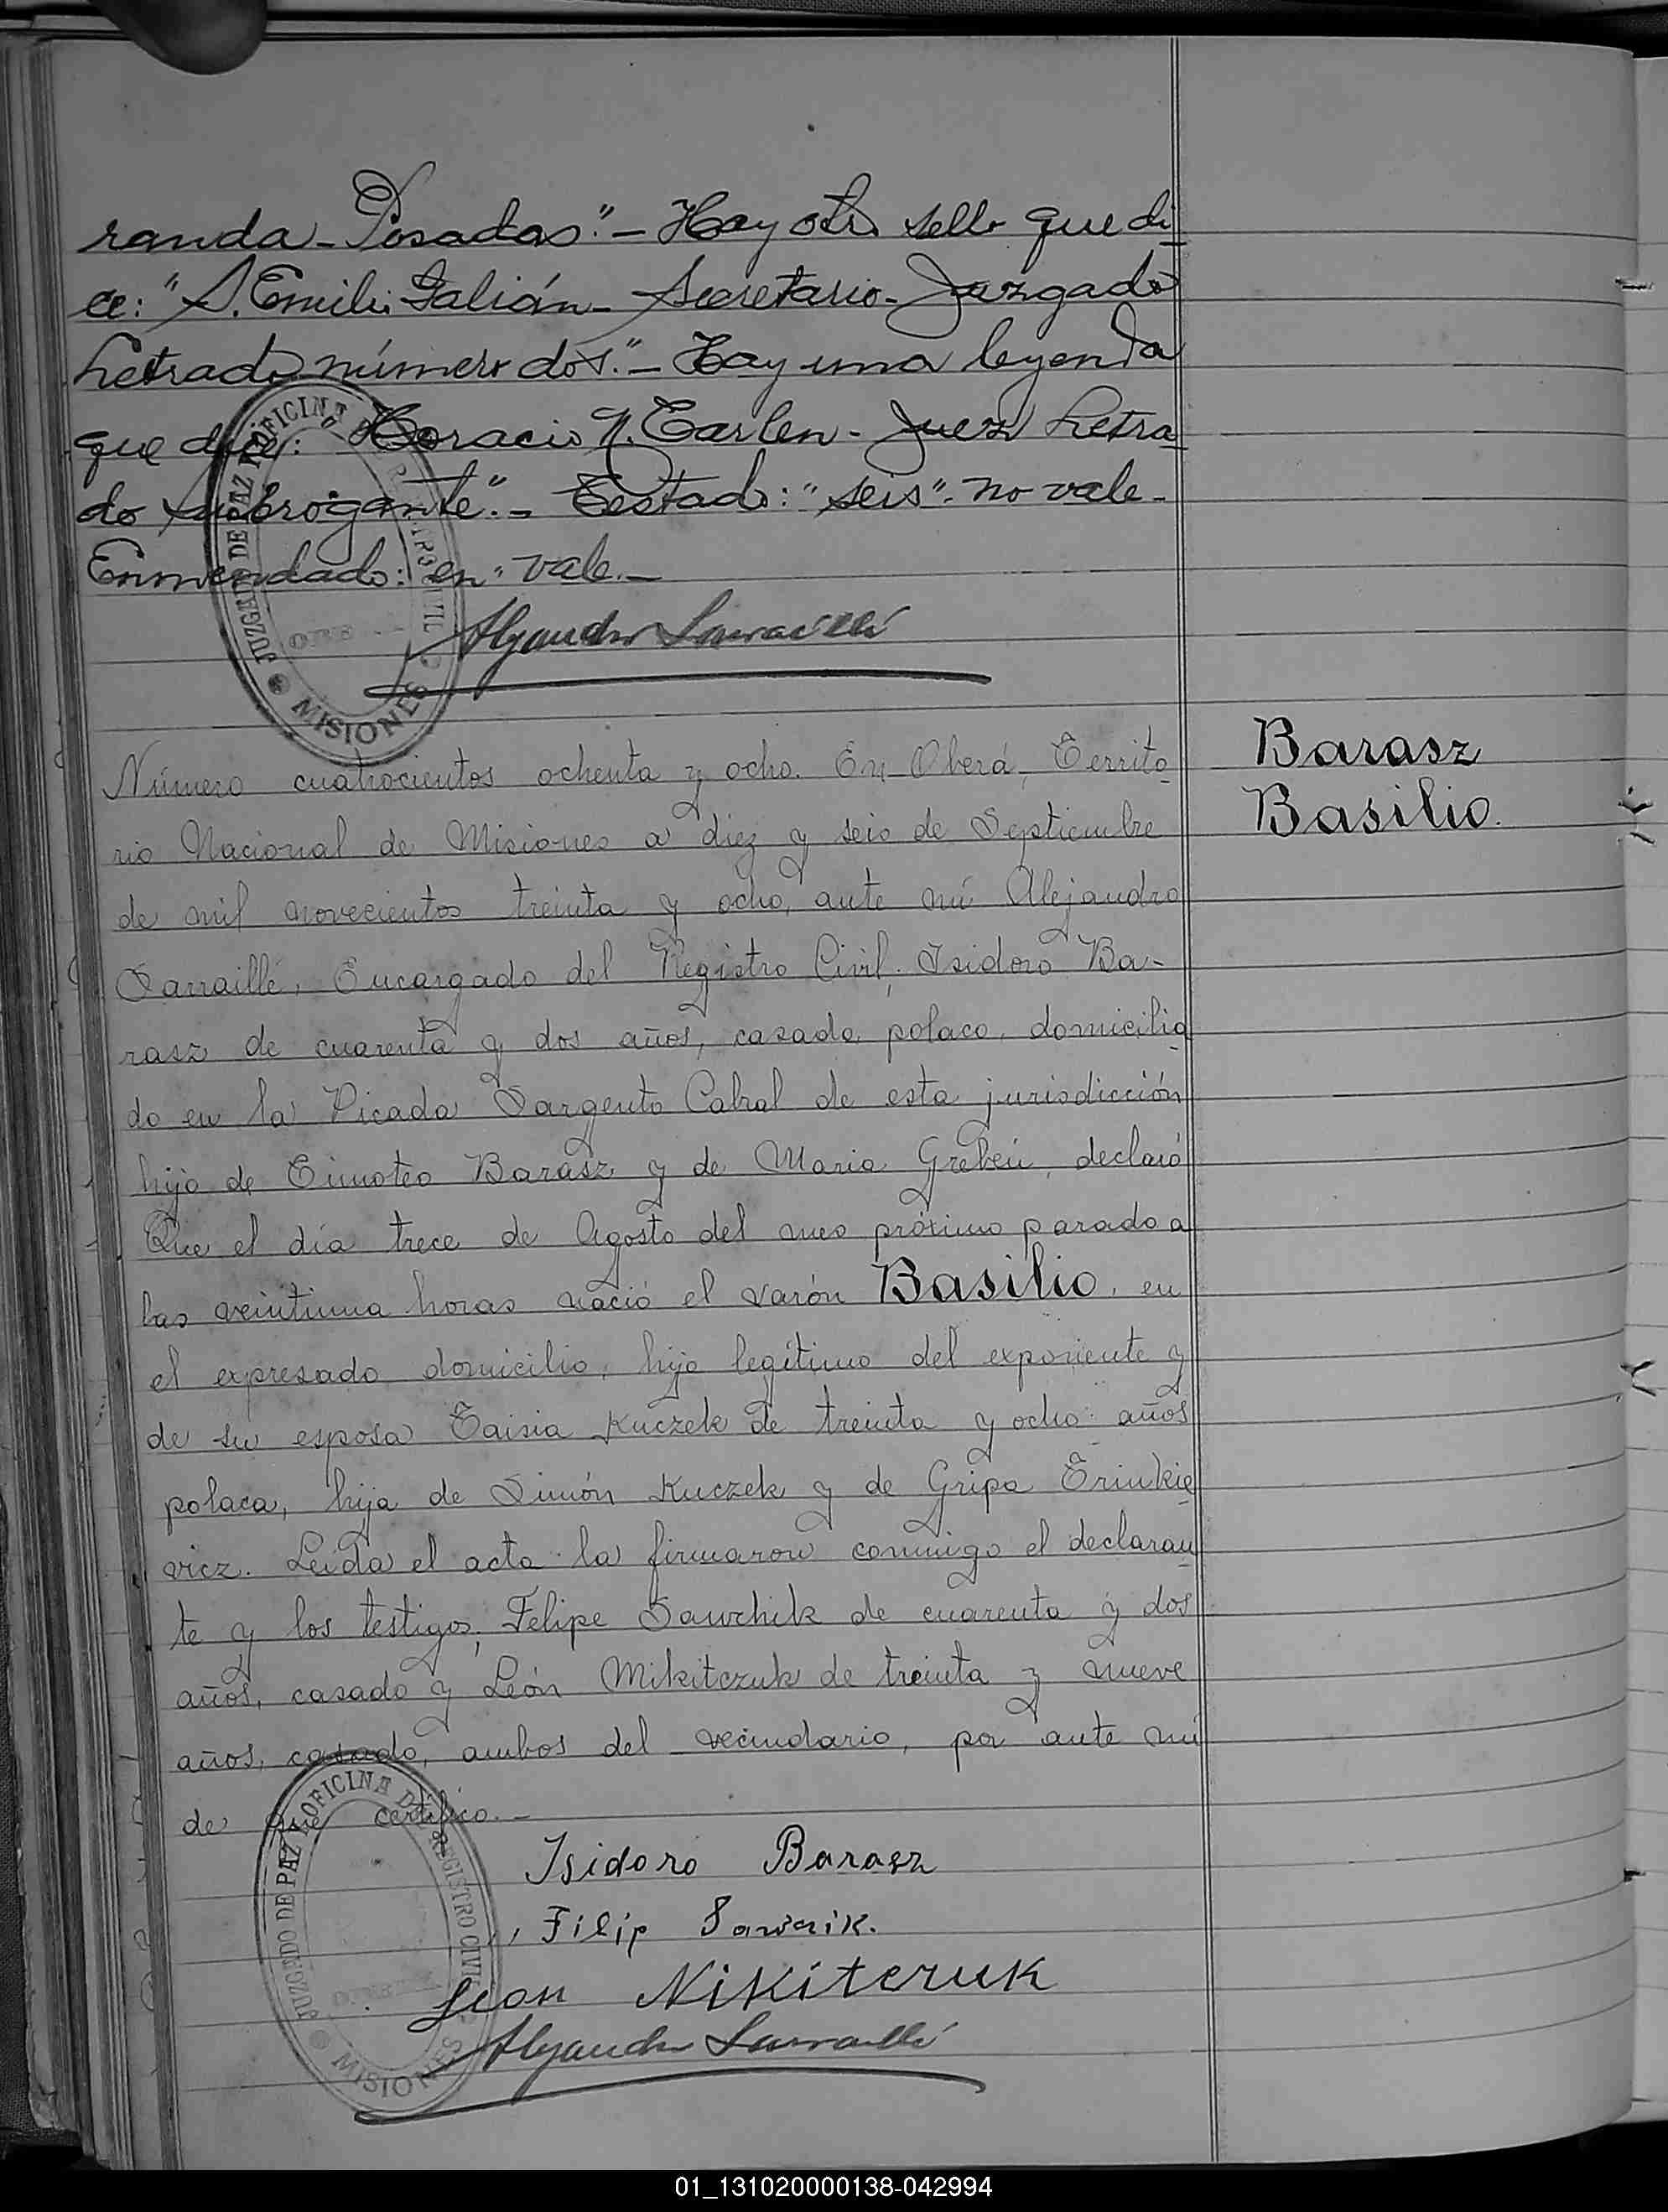 randa - Posadas." - Hay otro sello que di
ce: "S. Emilio Galián - Secretario - Juzgado
Letrado número dos." - Hay una leyenda
que dice: "Horacio N. Tarlen - Juez Letra
do Subrogante". - Testado: "seis". no vale -
Enmendado: "en" vale. -
JUZGADO DE PAZ Y OFICINA DEL REGISTRO CIVIL
MISIONES
Alejandro Sarraillé
Número cuatrocientos ochenta y ocho. En Oberá, Territo
Barasz
rio Nacional de Misiones a diez y seis de Septiembre
Basilio.
de mil novecientos treinta y ocho, ante mí Alejandro
Sarraillé, Encargado del Registro Civil, Isidoro Ba-
rasz de cuarenta y dos años, casado, polaco, domicilia
do en la Picada Sargento Cabral de esta jurisdicción
hijo de Timoteo Barasz y de Maria Greben, declaró
Que el día trece de Agosto del mes próximo pasado a
las veintiuna horas nació el varón Basilio, en
el expresado domicilio, hijo legítimo del exponente y
de su esposa Taisia Kuczek de treinta y ocho años
polaca, hija de Simón Kuczek y de Gripa Trinkie
vicz. Leída el acta la firmaron conmigo el declaran
te y los testigos, Felipe Sawchik de cuarenta y dos
años, casado y León Mikitczuk de treinta y nueve
años, casado, ambos del vecindario, por ante mí
de que certifico. -
JUZGADO DE PAZ Y OFICINA DEL REGISTRO CIVIL
MISIONES
Isidoro Barasz
Filip Sawcik.
Leon Nikiteruk
Alejandro Sarraillé
01_131020000138-042994